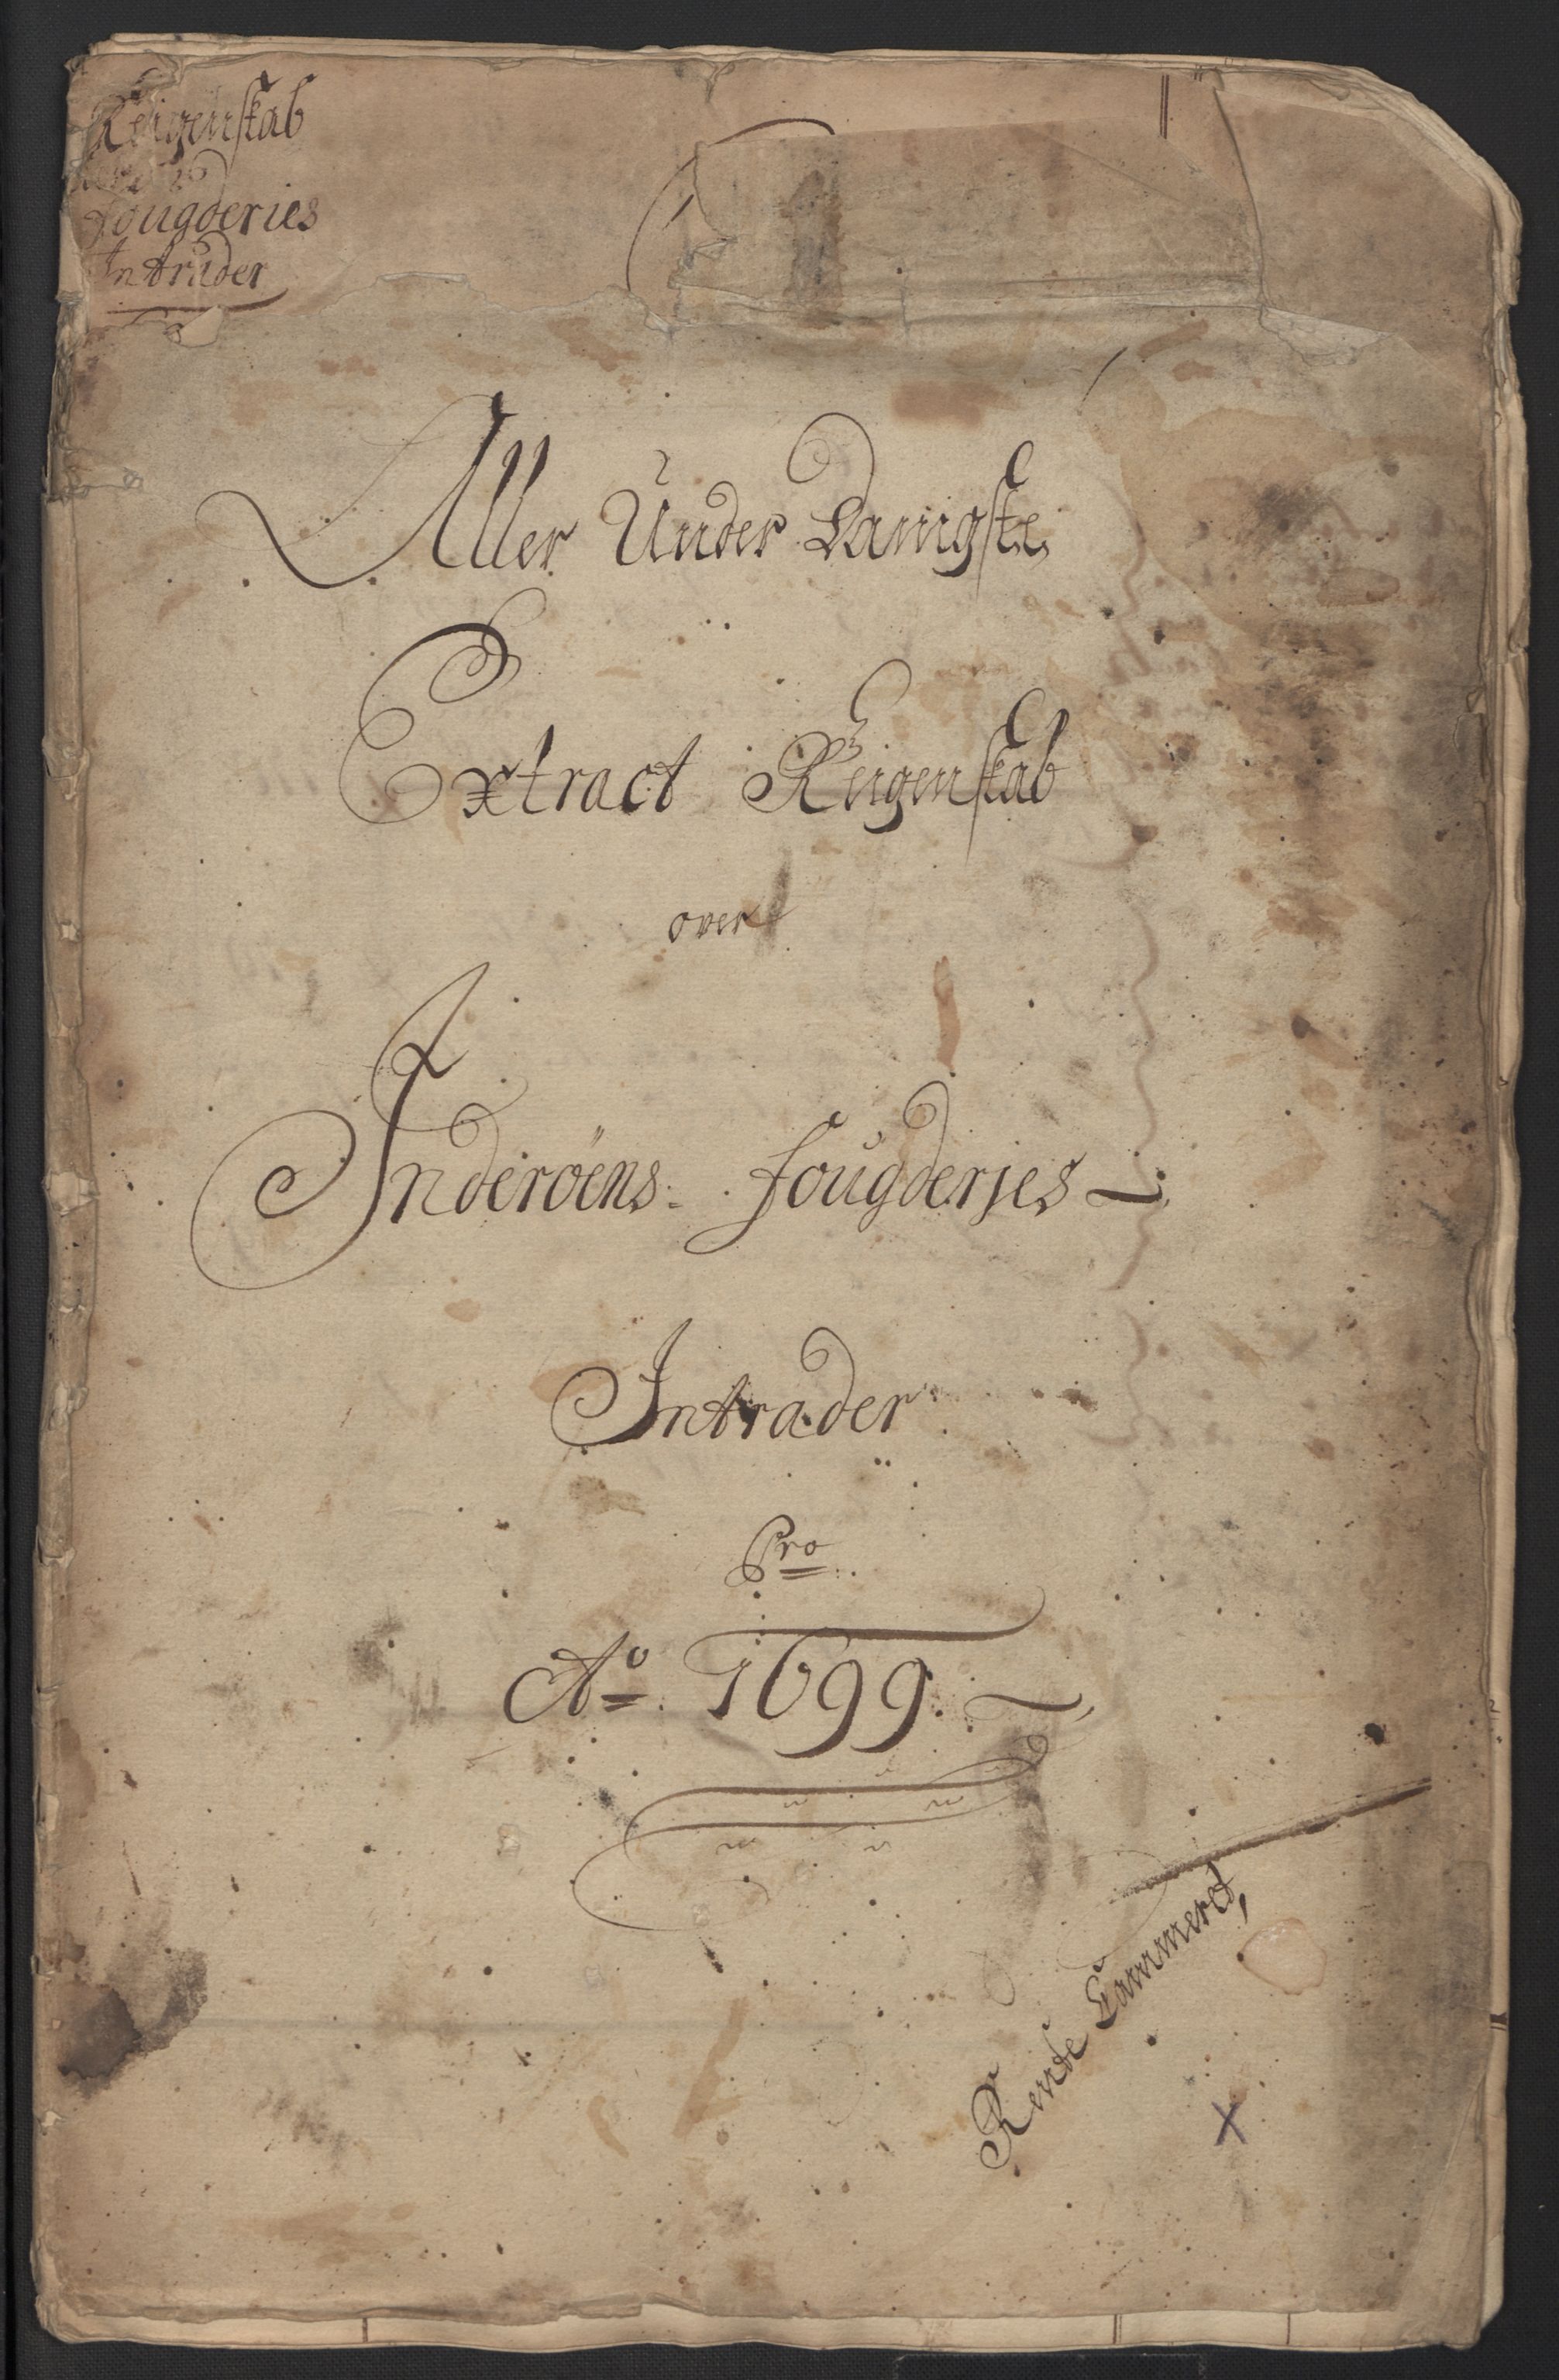 Reigenskab
fougderies
Intrader
Aller Under Danigste
Extract Reigenskab
over
Inderöens fougderjes
Intrader
Pro
Ao 1699
Rente Cammeret,
X